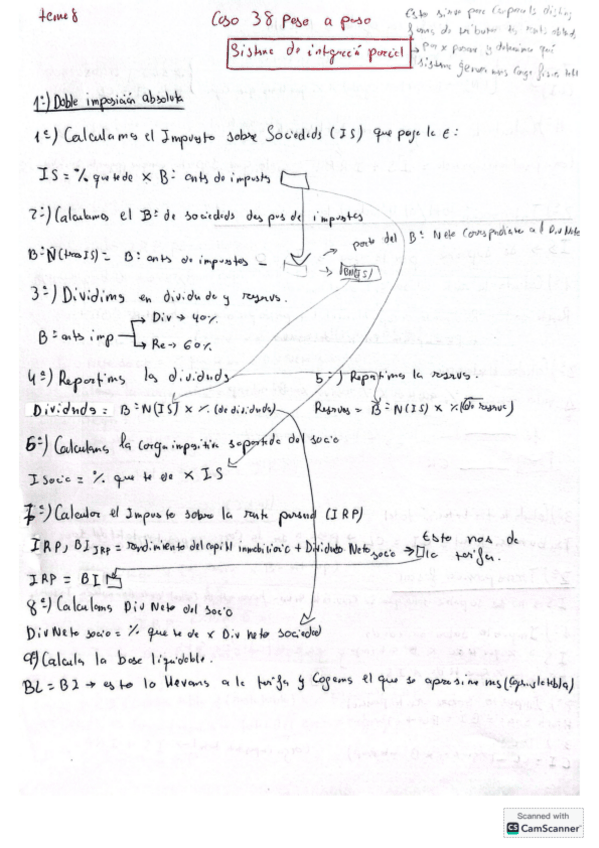 tema 8
Caso 38 Paso a paso
Esto sirve para comparar las distintas
formas de tributar
por x personas y determinar qué
sistema genera mas carga fiscal total
Sistema de integración parcial
1º) Doble imposición absoluta
1º) Calculamos el Impuesto sobre Sociedads (IS) que paga la E:
IS = % que te de x Bº ants de impusts
2º) Calculamos el Bº de sociedads despues de impustos
BºN (tras IS) = Bº ants de impuestos -
parte del Bº Neto correspondiente al Div Neto
BºN(IS)
3º) Dividims en dividendo y reservas.
Bº ants imp
Div → 40%
Re → 60%
4º) Repartims los dividends
5º) Repartims la reservas.
Dividends = BºN(IS) x % (de dividendo)
Reservas = BºN(IS) x % (de reserva)
6º) Calculams la carga impositiva soportada del socio
I socio = % que te de x IS
7º) Calculor el Impusto sobre la renta personal (IRP)
IRP, BI IRP = rendimiento del capital inmobiliario + Dividendo Neto socio →
Esto nos de
la tarifa.
IRP = BI
8º) Calculams Div Neto del socio
Div Neto socio = % que te de x Div Neto sociedad
9º) Calcula la base liquidable.
BL = BI → esto lo llevams a la tarifa y cogems el que se aproxime mas
Scanned with
CS CamScanner